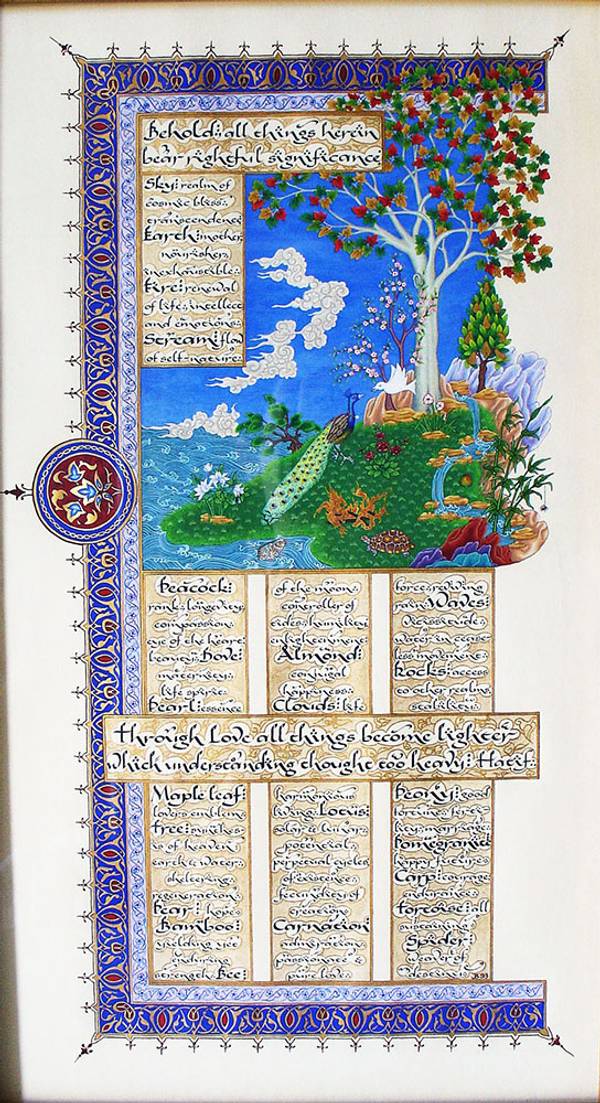 Behold: all things herein
bear rightful significance
Sky: realm of
cosmic bliss:
transcendence
Earth: mother
nourisher:
inexhaustible:
Fire: renewal
of life: intellect
and emotions:
Stream: flow
of self-nature:
Peacock:
rank: longevity
compassion:
eye of the heart:
beauty: Dove:
maternity:
life spirit:
Pearl: essence
of the moon:
controller of
tides: humility
enlightenment
Almond:
conjugal
happiness:
Clouds: life
force: giving
rain: Waves:
vicissitude:
water in cease
less movement:
Rocks: access
to other realms
stability:
Through Love all things become lighter
which understanding thought too heavy: Hatif:
Maple leaf:
lovers emblem
Tree:
of heaven
earth & water:
sheltering
regeneration:
Pear: hope:
Bamboo:
yielding yet
enduring
strength: Bee:
harmonious
living: Lotus:
solar & lunar:
potential:
perpetual cycles
of existence:
fecundity of
creation:
Carnation:
admiration:
passionate &
pure love:
Peony: good
fortune:
marriage:
Pomegranate
happy futures
Carp: courage
Tortoise: all
sustaining:
Spider:
weaver of
destinies: